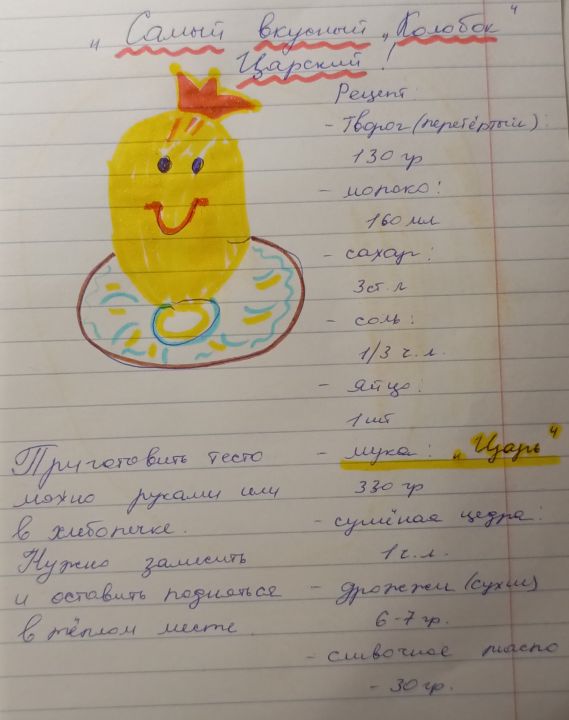 „ Самый вкусный „Колобок"
Царский!
Рецепт
- Творог (перетёртый):
130 гр
- молоко:
160 мл
- сахар:
3 ст. л
- соль:
1/3 ч. л.
- яйцо:
1 шт
- мука: „Царь"
330 гр
- сушёная цедра:
1 ч. л.
- дрожжи (сухие)
6-7 гр.
- сливочное масло
- 30 гр.
Приготовить тесто
можно руками или
в хлебопечке.
Нужно замесить
и оставить подняться
в тёплом месте.